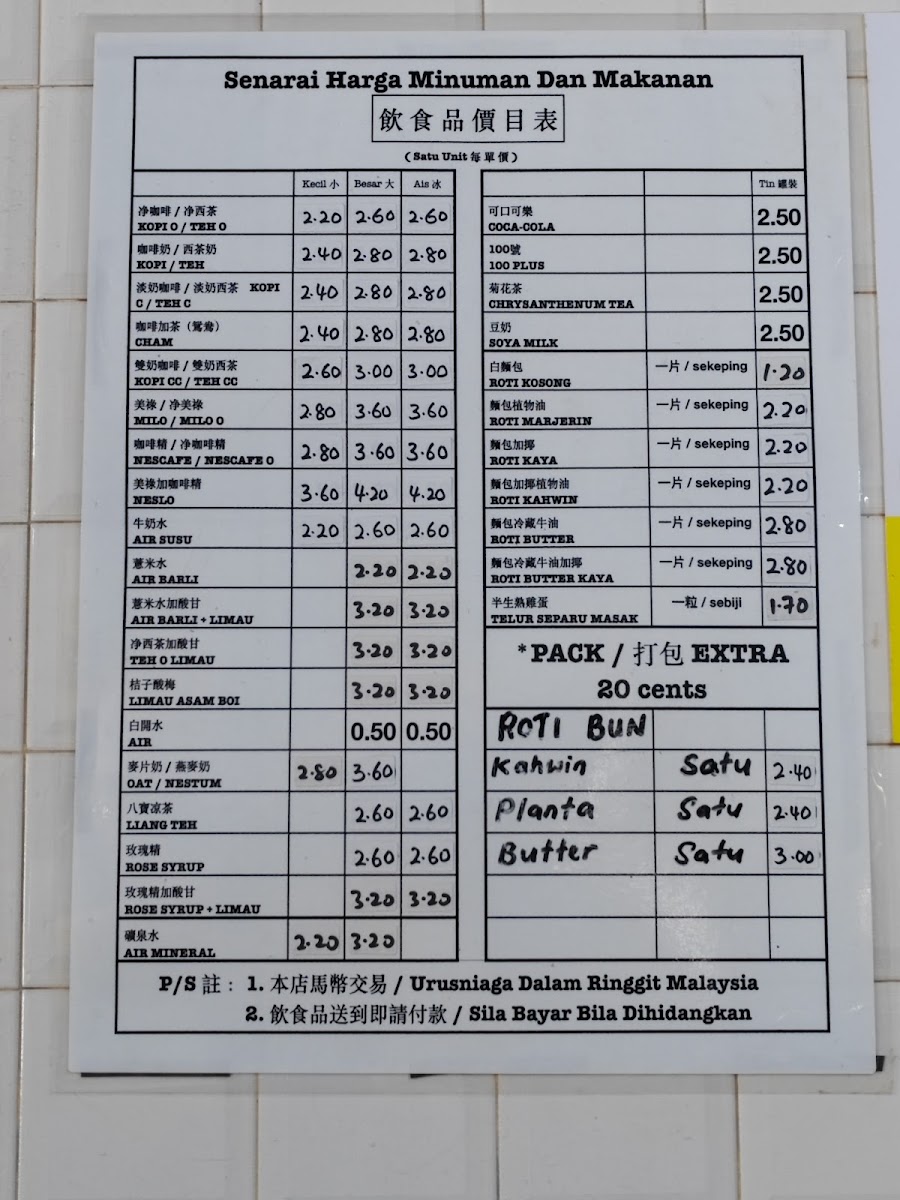 Senarai Harga Minuman Dan Makanan
飲食品價目表
(Satu Unit 每單價)
Kecil 小 Besar 大 Ais 冰
净咖啡 / 净西茶
KOPI O / TEH O 2.20 2.60 2.60
咖啡奶 / 西茶奶
KOPI / TEH 2.40 2.80 2.80
淡奶咖啡 / 淡奶西茶 KOPI
C / TEH C 2.40 2.80 2.80
咖啡加茶 (鴛鴦)
CHAM 2.40 2.80 2.80
雙奶咖啡 / 雙奶西茶
KOPI CC / TEH CC 2.60 3.00 3.00
美祿 / 净美祿
MILO / MILO O 2.80 3.60 3.60
咖啡精 / 净咖啡精
NESCAFE / NESCAFE O 2.80 3.60 3.60
美祿加咖啡精
NESLO 3.60 4.20 4.20
牛奶水
AIR SUSU 2.20 2.60 2.60
薏米水
AIR BARLI 2.20 2.20
薏米水加酸甘
AIR BARLI + LIMAU 3.20 3.20
净西茶加酸甘
TEH O LIMAU 3.20 3.20
桔子酸梅
LIMAU ASAM BOI 3.20 3.20
白開水
AIR 0.50 0.50
麥片奶 / 燕麥奶
OAT / NESTUM 2.80 3.60
八寶凉茶
LIANG TEH 2.60 2.60
玫瑰精
ROSE SYRUP 2.60 2.60
玫瑰精加酸甘
ROSE SYRUP + LIMAU 3.20 3.20
礦泉水
AIR MINERAL 2.20 3.20
Tin 罐裝
可口可樂
COCA-COLA 2.50
100號
100 PLUS 2.50
菊花茶
CHRYSANTHENUM TEA 2.50
豆奶
SOYA MILK 2.50
白麵包
ROTI KOSONG 一片 / sekeping 1.20
麵包植物油
ROTI MARJERIN 一片 / sekeping 2.20
麵包加椰
ROTI KAYA 一片 / sekeping 2.20
麵包加椰植物油
ROTI KAHWIN 一片 / sekeping 2.20
麵包冷藏牛油
ROTI BUTTER 一片 / sekeping 2.80
麵包冷藏牛油加椰
ROTI BUTTER KAYA 一片 / sekeping 2.80
半生熟雞蛋
TELUR SEPARU MASAK 一粒 / sebiji 1.70
*PACK / 打包 EXTRA
20 cents
ROTI BUN
Kahwin Satu 2.40
Planta Satu 2.40
Butter Satu 3.00
P/S 註 : 1. 本店馬幣交易 / Urusniaga Dalam Ringgit Malaysia
2. 飲食品送到即請付款 / Sila Bayar Bila Dihidangkan